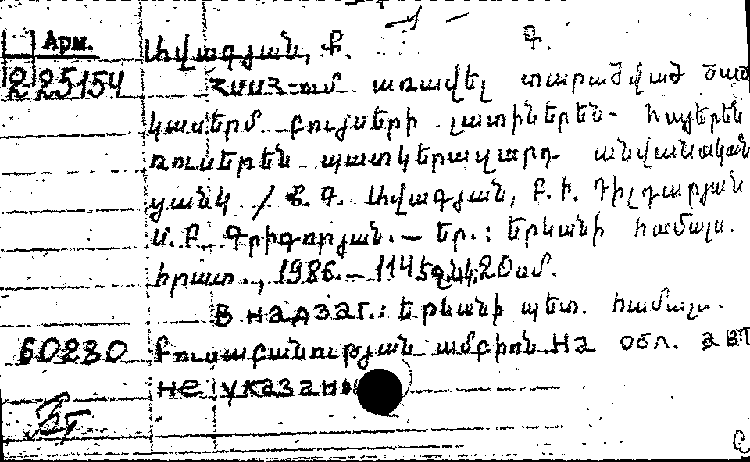 Арм.
Ավագյան, Ք. Գ.
225154 ՀՍՍՀ-ում առավել տարածված ծած
կասերմ բույսերի լատիներեն- հայերեն
ռուսերեն պատկերազարդ անվանական
ցանկ / Ք. Գ. Ավագյան, Ք. Ի. Դիլդարյան
Մ. Ք. Գրիգորյան. – Եր.: Երևանի համալս.
հրատ., 1986. – 114 էջ; 20սմ.
В надзаг.: Երևանի պետ. համալս.
60280 Բուսաբանության ամբիոն. на обл. авт
не указаны